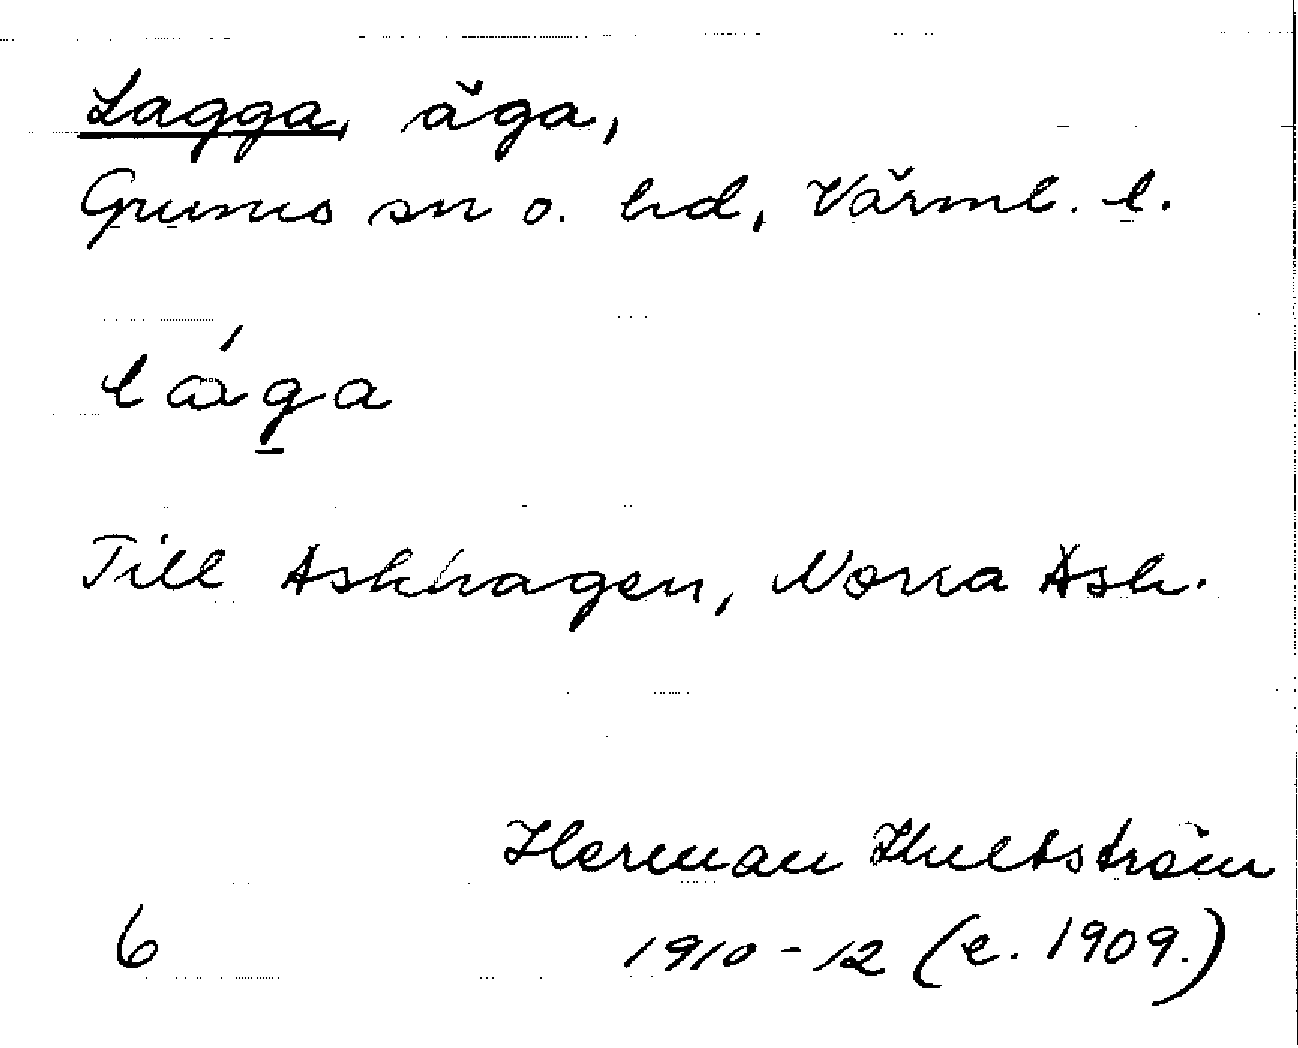 Lagga, äga,
Grums sn o. hd, Värml. l.
lá̈ga
Till Askhagen, Norra Ask.
Herman Hultström
6 1910-12 (e. 1909.)